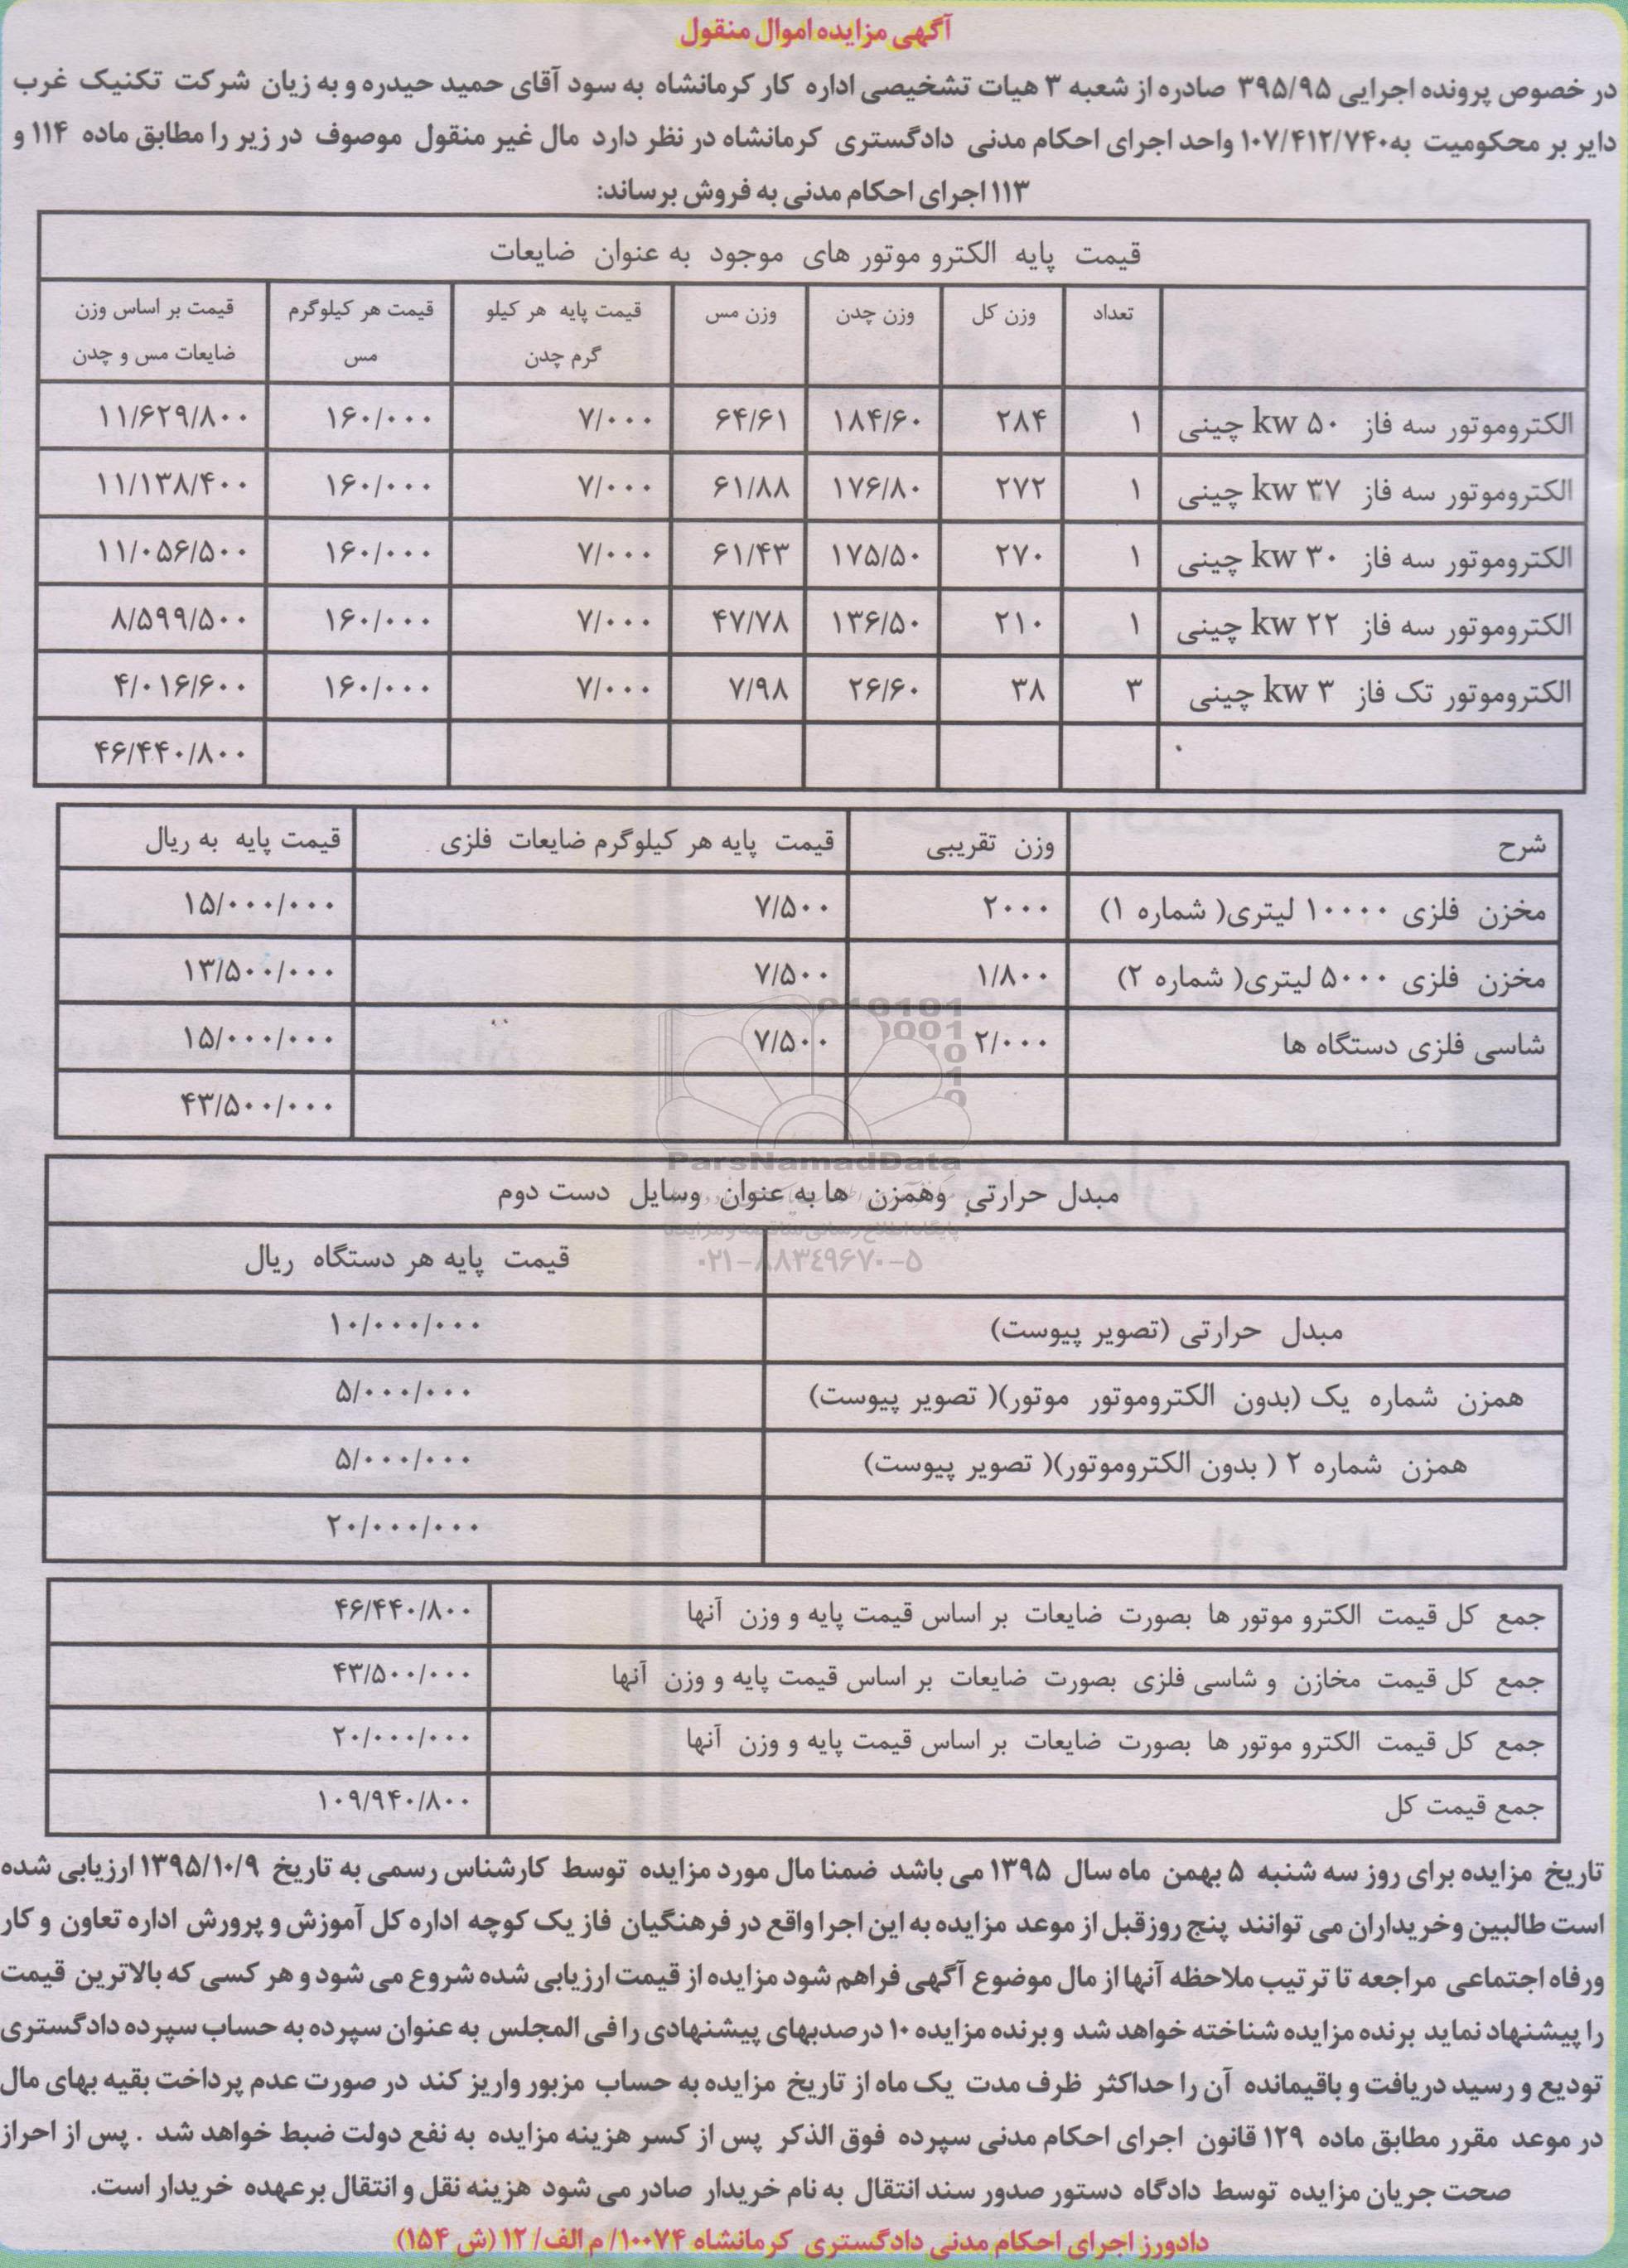 آگهی مزایده اموال منقول
در خصوص پرونده اجرایی ۳۹۵/۹۵ صادره از شعبه ۳ هیات تشخیصی اداره کار کرمانشاه به سود آقای حمید حیدره و به زیان شرکت تکنیک غرب
دایر بر محکومیت به ۱۰۷/۴۱۲/۷۴۰ واحد اجرای احکام مدنی دادگستری کرمانشاه در نظر دارد مال غیر منقول موصوف در زیر را مطابق ماده ۱۱۴ و
۱۱۳ اجرای احکام مدنی به فروش برساند:
قیمت پایه الکترو موتور های موجود به عنوان ضایعات
تعداد وزن کل وزن چدن وزن مس قیمت پایه هر کیلو گرم چدن قیمت هر کیلوگرم مس قیمت بر اساس وزن ضایعات مس و چدن
الکتروموتور سه فاز ۵۰ kw چینی ۱ ۲۸۴ ۱۸۴/۶۰ ۶۴/۶۱ ۷/۰۰۰ ۱۶۰/۰۰۰ ۱۱/۶۲۹/۸۰۰
الکتروموتور سه فاز ۳۷ kw چینی ۱ ۲۷۲ ۱۷۶/۸۰ ۶۱/۸۸ ۷/۰۰۰ ۱۶۰/۰۰۰ ۱۱/۱۳۸/۴۰۰
الکتروموتور سه فاز ۳۰ kw چینی ۱ ۲۷۰ ۱۷۵/۵۰ ۶۱/۴۳ ۷/۰۰۰ ۱۶۰/۰۰۰ ۱۱/۰۵۶/۵۰۰
الکتروموتور سه فاز ۲۲ kw چینی ۱ ۲۱۰ ۱۳۶/۵۰ ۴۷/۷۸ ۷/۰۰۰ ۱۶۰/۰۰۰ ۸/۵۹۹/۵۰۰
الکتروموتور تک فاز ۳ kw چینی ۳ ۳۸ ۲۶/۶۰ ۷/۹۸ ۷/۰۰۰ ۱۶۰/۰۰۰ ۴/۰۱۶/۶۰۰
۴۶/۴۴۰/۸۰۰
شرح وزن تقریبی قیمت پایه هر کیلوگرم ضایعات فلزی قیمت پایه به ریال
مخزن فلزی ۱۰۰۰۰ لیتری( شماره ۱) ۲۰۰۰ ۷/۵۰۰ ۱۵/۰۰۰/۰۰۰
مخزن فلزی ۵۰۰۰ لیتری( شماره ۲) ۱/۸۰۰ ۷/۵۰۰ ۱۳/۵۰۰/۰۰۰
شاسی فلزی دستگاه ها ۲/۰۰۰ ۷/۵۰۰ ۱۵/۰۰۰/۰۰۰
۴۳/۵۰۰/۰۰۰
ParsNamadData
مبدل حرارتی وهمزن ها به عنوان وسایل دست دوم
پایگاه اطلاع رسانی مناقصه و مزایده
قیمت پایه هر دستگاه ریال
۰۲۱-۸۸۳۴۹۶۷۰-۵
مبدل حرارتی (تصویر پیوست) ۱۰/۰۰۰/۰۰۰
همزن شماره یک (بدون الکتروموتور موتور)( تصویر پیوست) ۵/۰۰۰/۰۰۰
همزن شماره ۲ ( بدون الکتروموتور)( تصویر پیوست) ۵/۰۰۰/۰۰۰
۲۰/۰۰۰/۰۰۰
جمع کل قیمت الکترو موتور ها بصورت ضایعات بر اساس قیمت پایه و وزن آنها ۴۶/۴۴۰/۸۰۰
جمع کل قیمت مخازن و شاسی فلزی بصورت ضایعات بر اساس قیمت پایه و وزن آنها ۴۳/۵۰۰/۰۰۰
جمع کل قیمت الکترو موتور ها بصورت ضایعات بر اساس قیمت پایه و وزن آنها ۲۰/۰۰۰/۰۰۰
جمع قیمت کل ۱۰۹/۹۴۰/۸۰۰
تاریخ مزایده برای روز سه شنبه ۵ بهمن ماه سال ۱۳۹۵ می باشد ضمنا مال مورد مزایده توسط کارشناس رسمی به تاریخ ۱۳۹۵/۱۰/۹ ارزیابی شده
است طالبین وخریداران می توانند پنج روز قبل از موعد مزایده به این اجرا واقع در فرهنگیان فاز یک کوچه اداره کل آموزش و پرورش اداره تعاون و کار
ورفاه اجتماعی مراجعه تا ترتیب ملاحظه آنها از مال موضوع آگهی فراهم شود مزایده از قیمت ارزیابی شده شروع می شود و هر کسی که بالاترین قیمت
را پیشنهاد نماید برنده مزایده شناخته خواهد شد و برنده مزایده ۱۰ درصدبهای پیشنهادی را فی المجلس به عنوان سپرده به حساب سپرده دادگستری
تودیع و رسید دریافت و باقیمانده آن را حداکثر ظرف مدت یک ماه از تاریخ مزایده به حساب مزبور واریز کند در صورت عدم پرداخت بقیه بهای مال
در موعد مقرر مطابق ماده ۱۲۹ قانون اجرای احکام مدنی سپرده فوق الذکر پس از کسر هزینه مزایده به نفع دولت ضبط خواهد شد . پس از احراز
صحت جریان مزایده توسط دادگاه دستور صدور سند انتقال به نام خریدار صادر می شود هزینه نقل و انتقال برعهده خریدار است.
دادورز اجرای احکام مدنی دادگستری کرمانشاه ۱۰۰۷۴/ م الف/ ۱۲ (ش ۱۵۴)